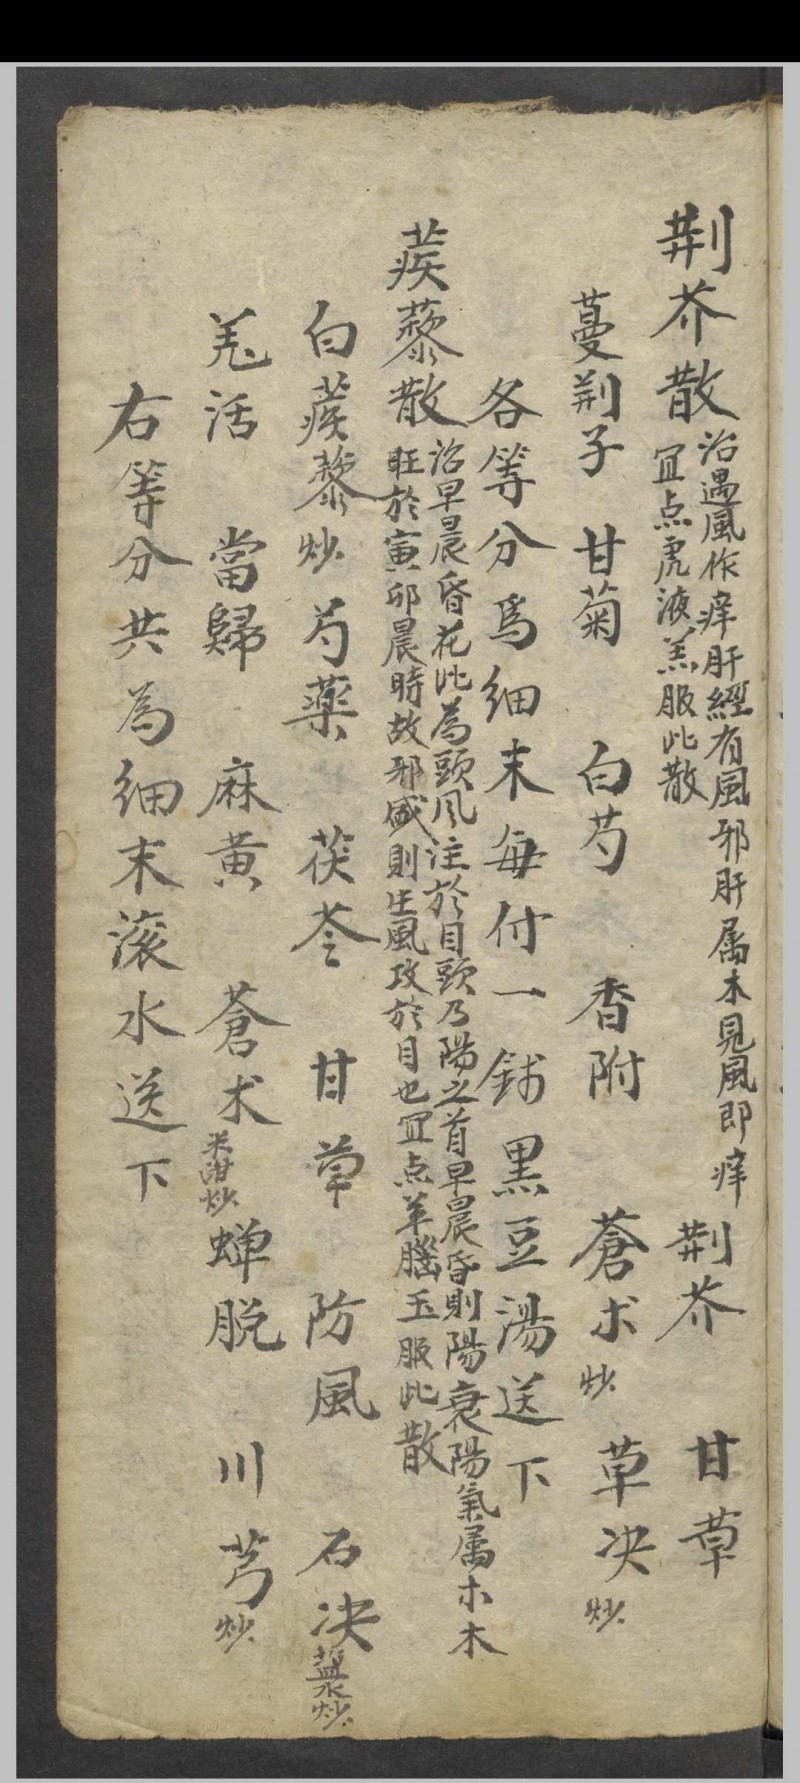 荆芥散
治遇風作痒肝經有風邪肝属木見風即痒
宜点虎液羔服此散
荆芥 甘草
蔓荆子 甘菊 白芍 香附 蒼朮炒 草决炒
各等分爲細末每付一錢黑豆湯送下
蒺藜散
治早晨昏花此為頭风注於目頭乃陽之首早晨昏則陽衰陽氣属木木
旺於寅卯晨時故邪盛則生風攻於目也宜点羊腦玉服此散
白蒺藜炒 芍藥 茯苓 甘草 防風 石决 鹽水炒
羌活 當歸 麻黄 蒼术 米泔炒 蝉脱 川芎炒
右等分共為細末滚水送下